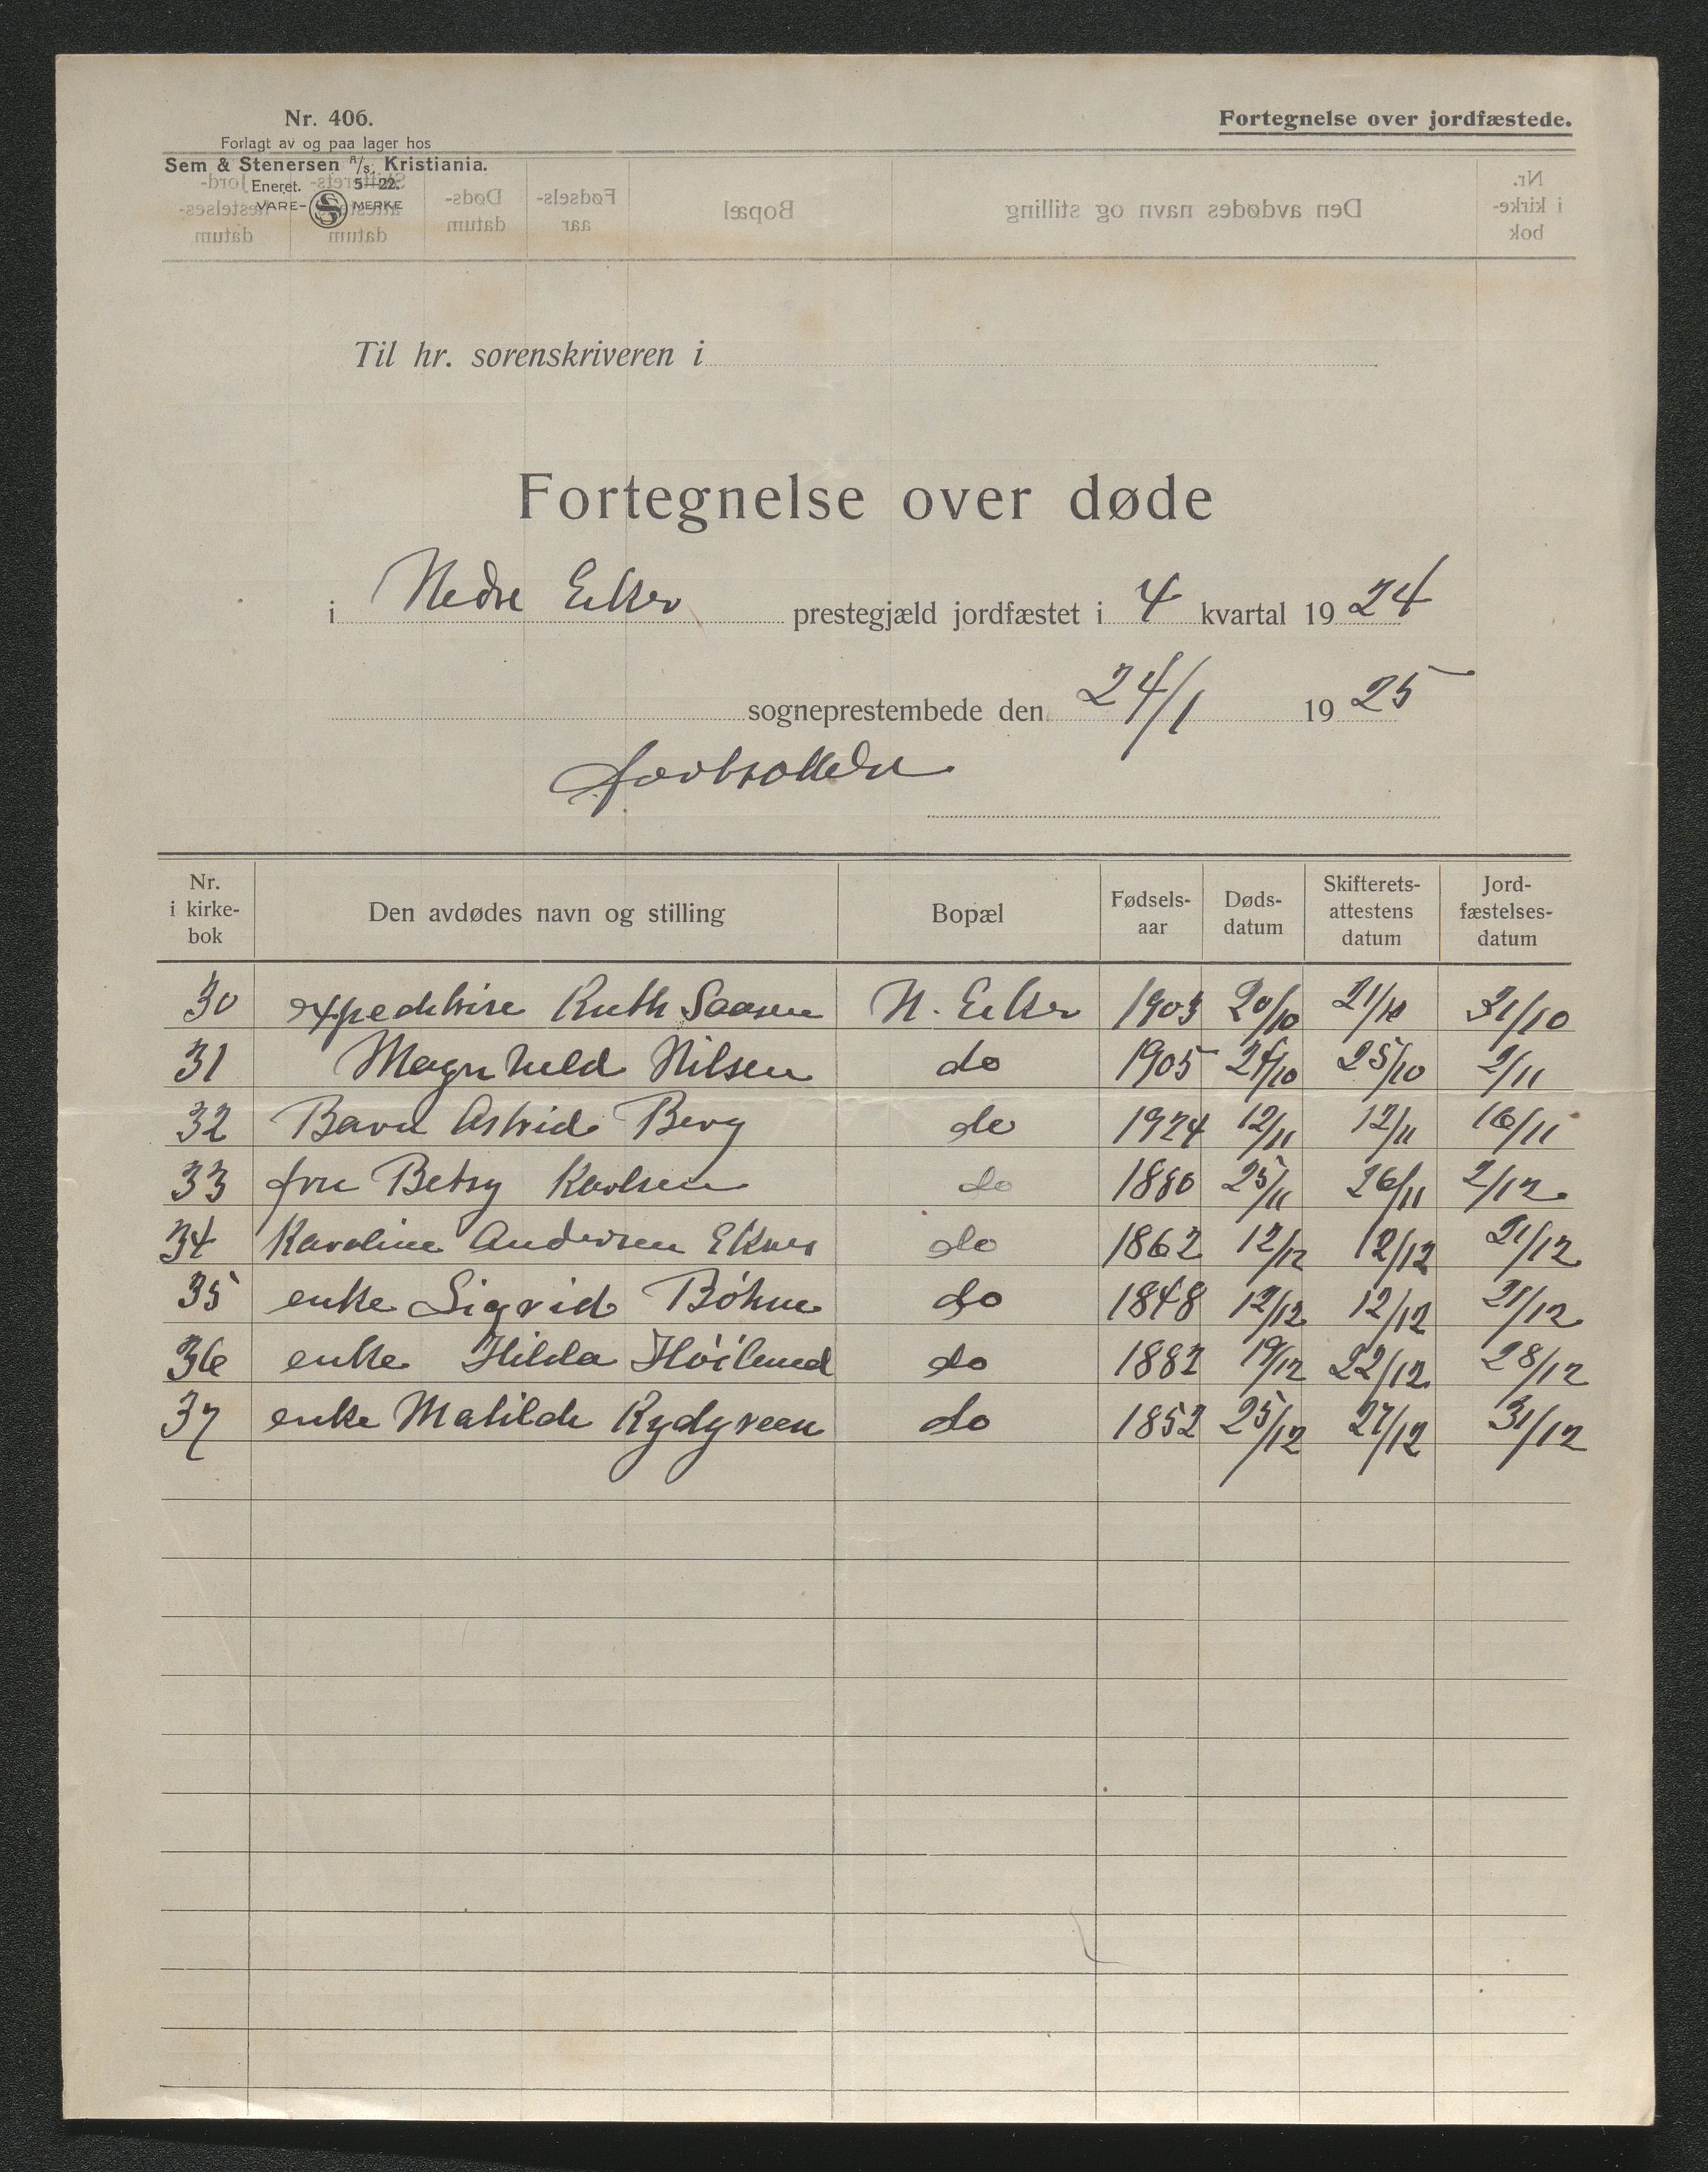 Nr. 406.
Forlagt av og paa lager hos
Sem & Stenersen A/S. Kristiania.
Eneret. 5—22.
VARE- SS MERKE
Fortegnelse over jordfæstede.
Til hr. sorenskriveren i
Fortegnelse over døde
i Nedre Eiker prestegjæld jordfæstet i 4 kvartal 1924
sogneprestembede den 24/1 1925
Nr. i kirke-bok Den avdødes navn og stilling Bopæl Fødsels-aar Døds-datum Skifterets-attestens datum Jord-fæstelses-datum
30 expeditrise Ruth Saasen N. Eiker 1903 20/10 21/10 31/10
31 Magnhild Nilsen do 1905 24/10 25/10 2/11
32 Barn Astrid Berg do 1924 12/11 12/11 16/11
33 fru Betsy Karlsen do 1880 25/11 26/11 2/12
34 Karoline Andersen Eknes do 1862 12/12 12/12 21/12
35 enke Sigrid Bøhm do 1848 12/12 12/12 21/12
36 enke Hilda Høilund do 1882 19/12 22/12 28/12
37 enke Matilde Rydgreen do 1852 25/12 27/12 31/12